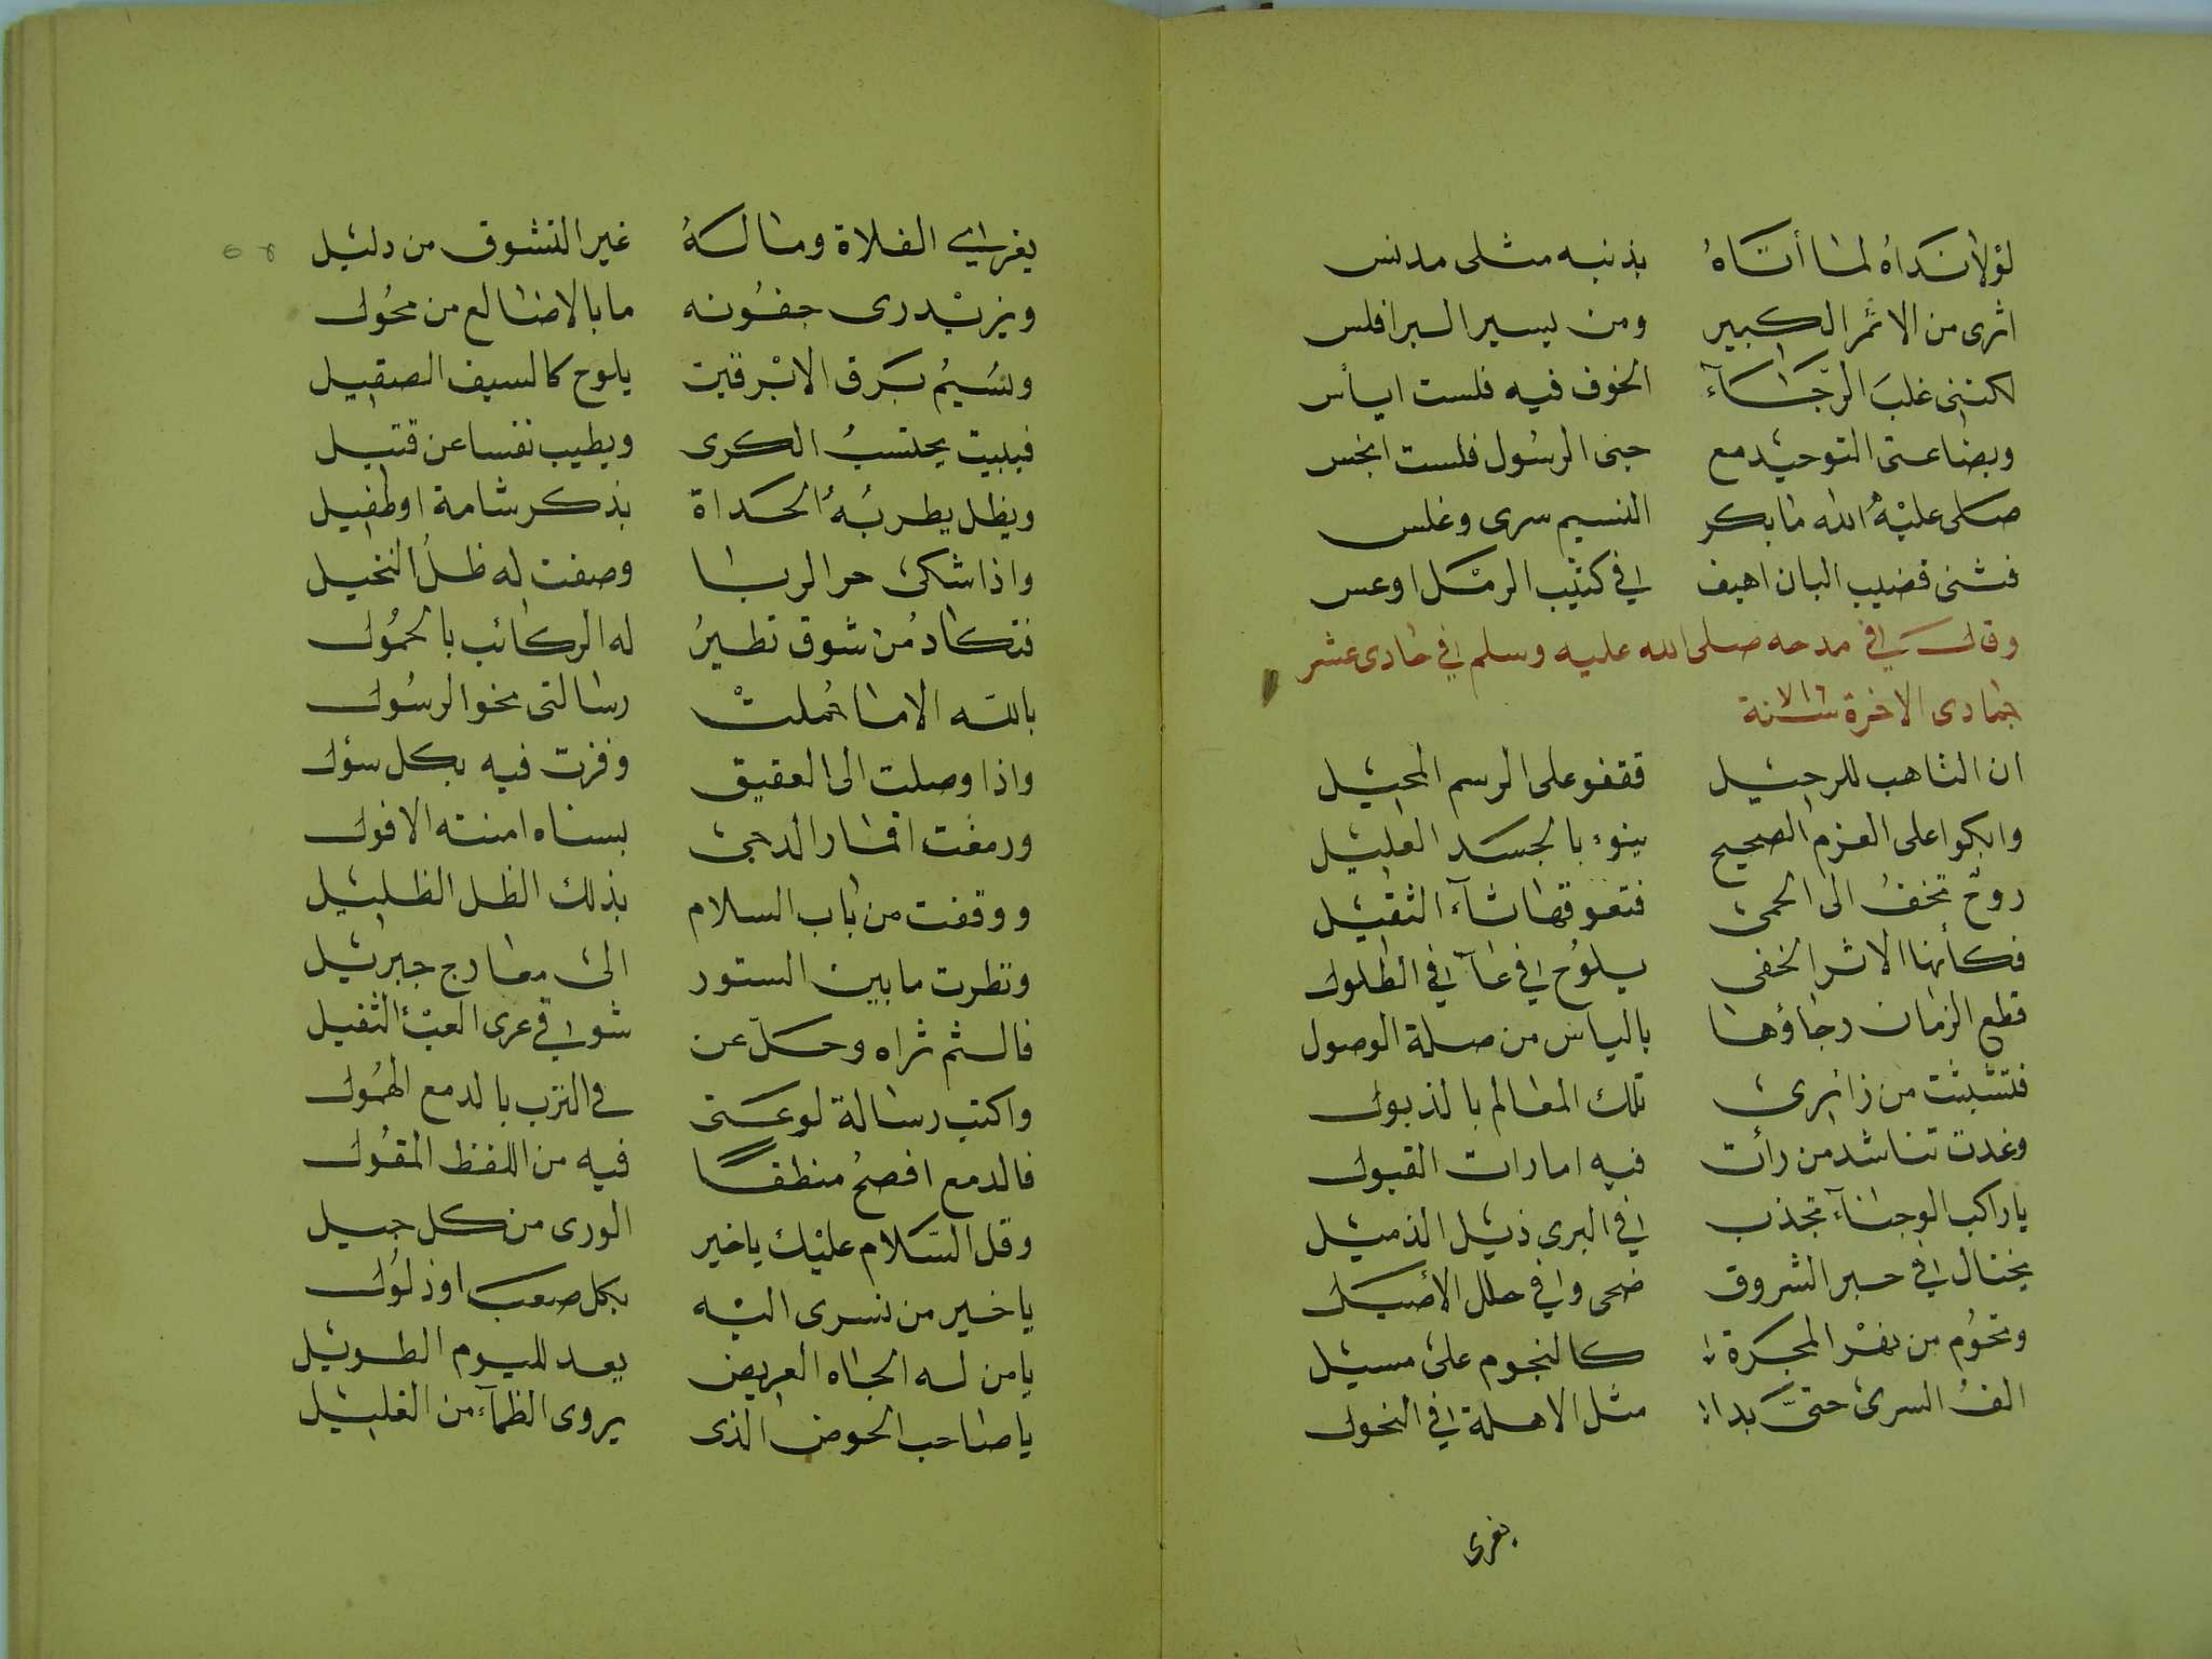 لولا نداه لما أتاه بذنبه مثلى مدنس
اثرى من الاثم الكبير ومن يسير البر افلس
لكننى غلب الرجاء الخوف فيه فلست ايأس
وبضاعتى التوحيد مع حبى الرسول فلست ابخس
صلى عليه الله ما بكر النسيم سرى وغلس
فثنى قضيب البان اهيف فى كثيب الرمل اوعس
وقال فى مدحه صلى الله عليه وسلم فى حادى عشر
جمادى الاخرة سنة
ان التاهب للرحيل فقفو على الرسم المحيل
وابكوا على العزم الصحيح ينوء بالجسد العليل
روح تخف الى الحمى فتعوقها الثقيل
فكأنها الاثر الخفى يلوح فى فى الطلول
قطع الزمان رجاؤها بالياس من صلة الوصول
فتشبثت من زائرى تلك المعالم بالذيول
وغدت تناشد من رأت فيه امارات القبول
ياراكب الوجناء تجذب فى البرى ذيل الذميل
يختال فى حبر الشروق ضحى وفى حلل الأصيل
وتحوم من نهر المجرة كالنجوم على مسيل
الف السرى حتى بدا مثل الاهلة فى النحول
يفرى
يفرى الفلاة وماله غير التشوق من دليل
ويزيد رى جفونه ما بالاضالع من محول
ويشيم برق الابرقين يلوح كالسيف الصقيل
فيبيت يحتسب الكرى ويطيب نفسا عن قتيل
ويظل يطربه الحداة بذكر شامة او طفيل
واذا شكى حر الربا وصفت له ظل النخيل
فتكاد من شوق تطير له الركائب بالحمول
بالله الاما حملت رسالتى نحو الرسول
واذا وصلت الى العقيق وفزت فيه بكل سؤل
ورمقت اقمار الدجى بسناه امنته الافول
ووقفت من باب السلام بذلك الظل الظليل
ونظرت ما بين الستور الى معارج جبرئيل
فالثم ثراه وحل عن شوقى عرى العبء الثقيل
واكتب رسالة لوعتى فى الترب بالدمع الهمول
فالدمع افصح منطقا فيه من اللفظ المقول
وقل السلام عليك ياخير الورى من كل جيل
ياخير من نسرى اليه بكل صعب او ذلول
يامن له الجاه العريض يعد لليوم الطويل
ياصاحب الحوض الذى يروى الظماء من الغليل